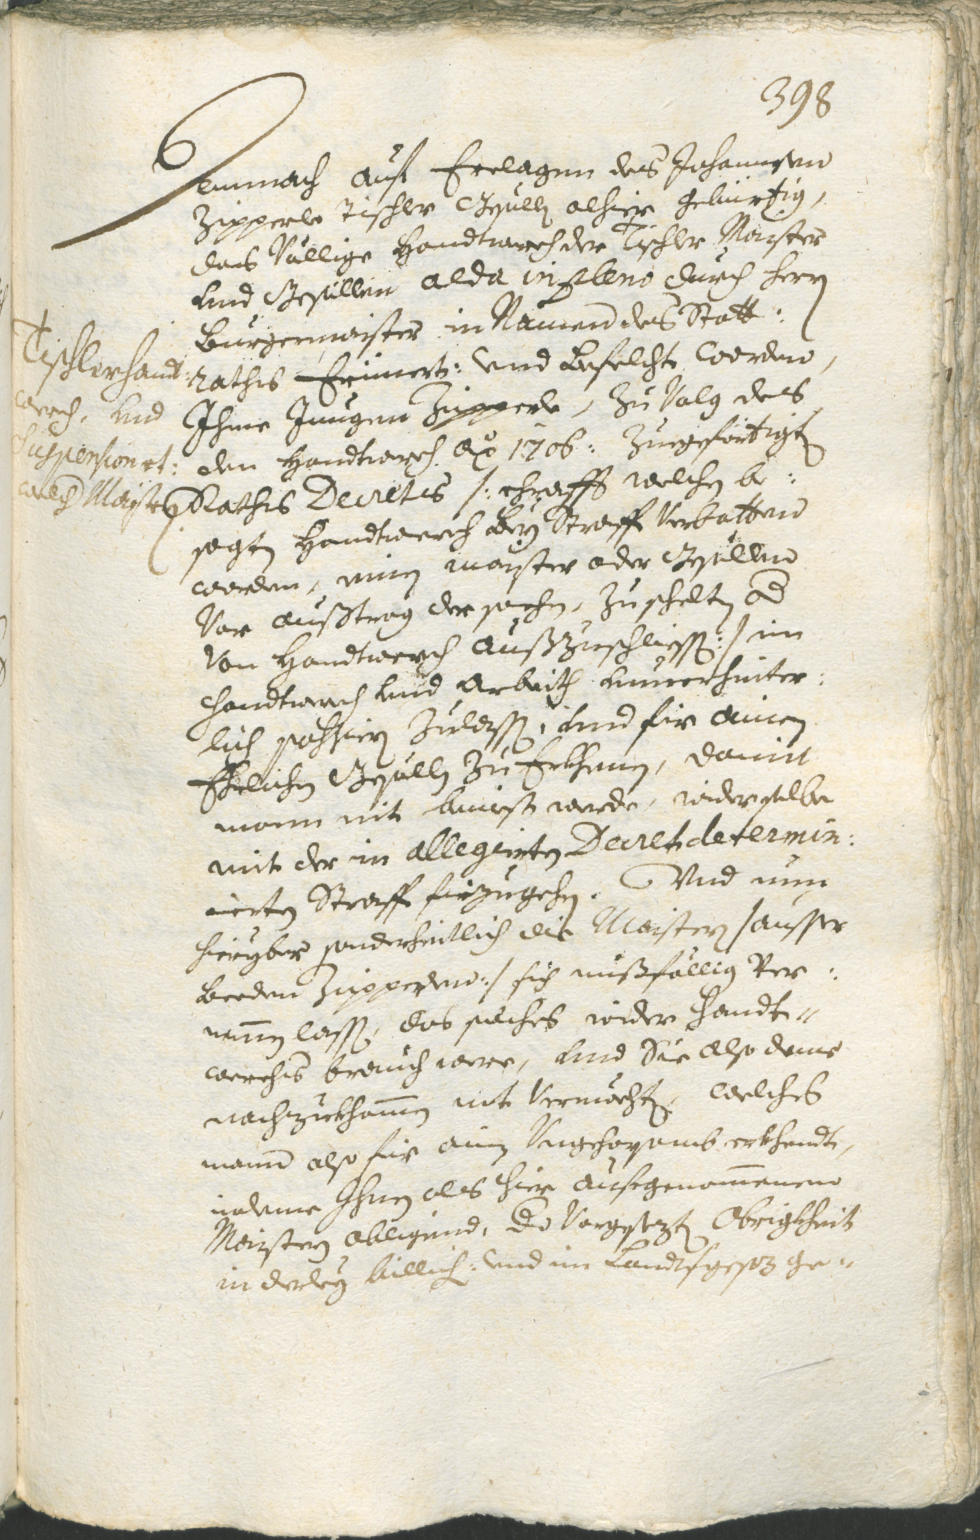 398
Demnach auf Erclagen des Johannsen
Zipperle Tischler Gsölln alhier gebürtig,
das Völlige Handtwerch der Tischler Maister
und Gesöllen alda in pleno durch Herrn
Burgermaister in Namen des Statt:
rathis Erinnert: und befelcht worden,
Ihme Jungen Zipperle, zu Volg des
den Handtwerch Aõ 1706: zuegefertigten
Rathis Decretes /: chrafft welchen be:
sagten Handtwerch bey Straff Verbotten
worden, einen maister oder Gesöllen
Vor außtrag der sachen, zu schelten od
Von Handtwerch außzuschliessen :/ im
Handtwerch und Arbeith unverhinter:
lich passiern zulassen, und für ainen
Ehrlichen Gsölln zu Erkhenen, damit
mann nit bemüest werde, wider selbe
mit der in allegierten Decret determin:
ierten Straff fürzugehen. Und nun
hieryber sonderheitlich die Maister /ausser
beeden Zipperlen:/ sich mißfällig Ver:
nemen lassen, das solches wider Handt„
werchs brauch were, und Sie also deme
nachzukhomen nit Vermöchten, welches
mann also für ainen Ungehorsamb erkhendt,
indeme Ihnen als hier aufgenommenen
Maistern obligend, die Vorgesezte Obrigkheit
in derley billich: und im Landtsgesez ge„
Tischlerhandt:
werch, und
Suspension et:
welcher Maister